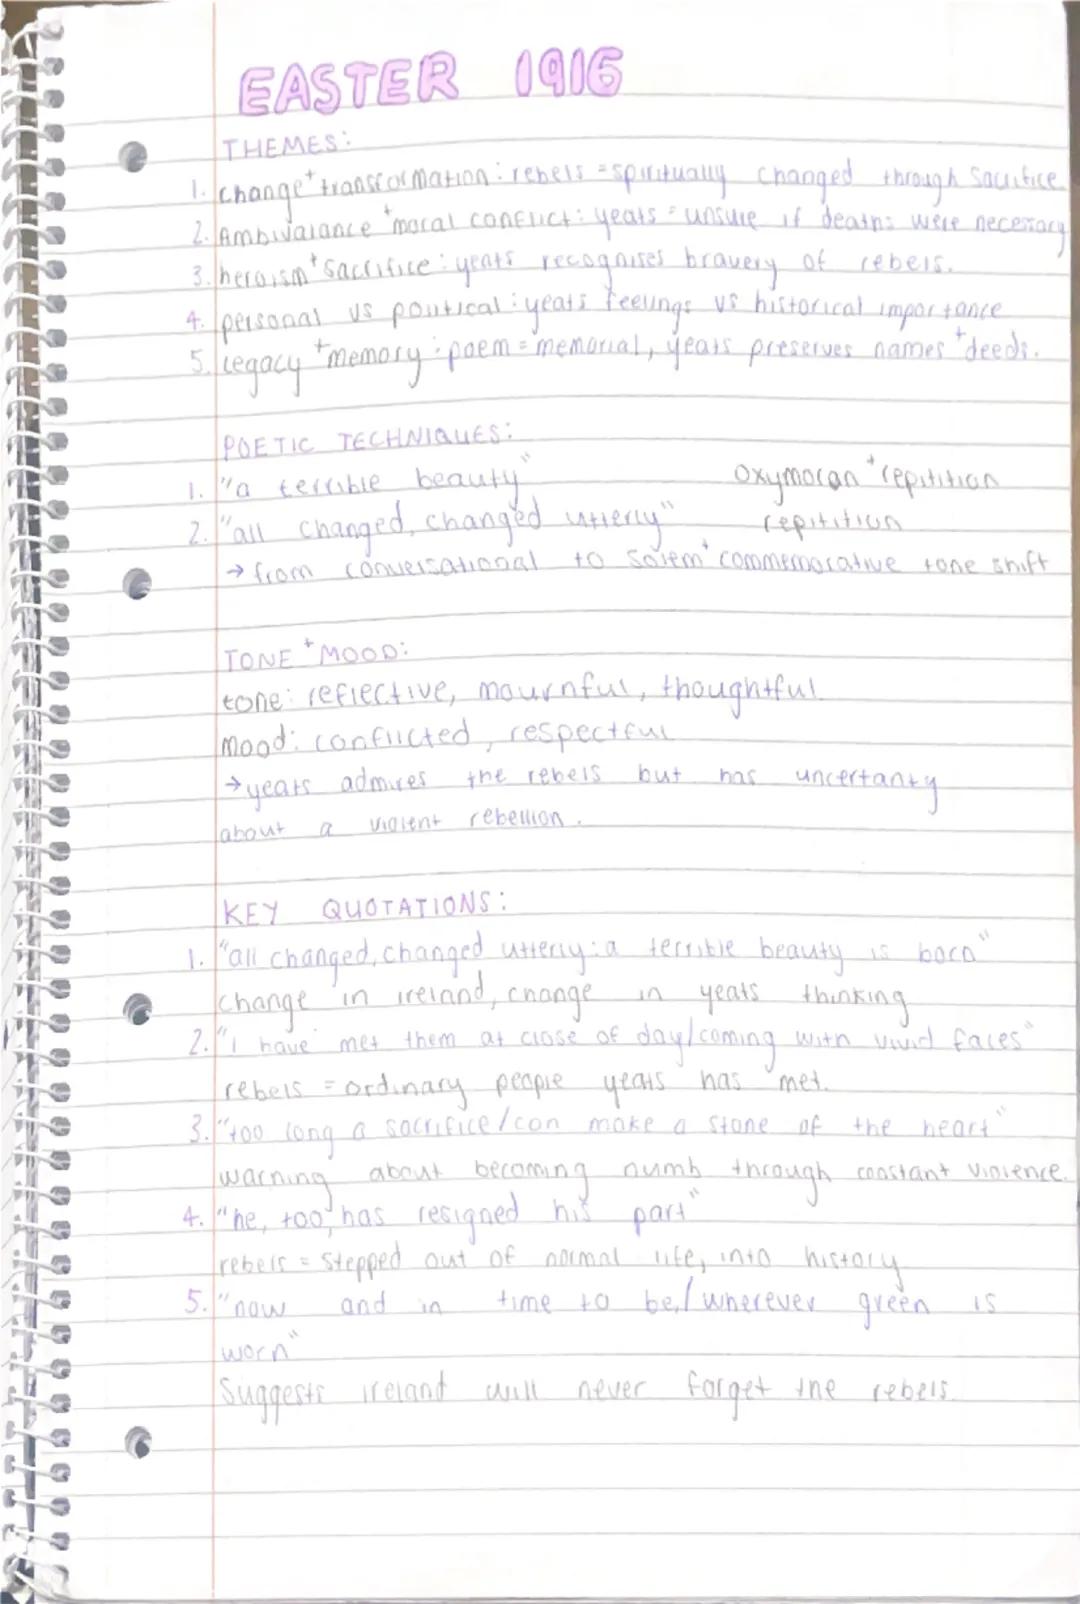 EASTER 1916
THEMES:
1. change + transformation: rebels = spiritually changed through sacrifice.
2. Ambivalance + moral conflict: yeats = unsure if deaths were necessary
3. heroism + sacrifice: yeats recognises bravery of rebels.
4. personal vs political: yeats feelings vs historical importance
5. legacy + memory: poem = memorial, yeats preserves names + deeds.
POETIC TECHNIQUES:
1. "a terrible beauty" oxymoron + repitition
2. "all changed, changed utterly" repitition
→ from conversational to solem + commemorative tone shift
TONE + MOOD:
tone: reflective, mournful, thoughtful
Mood: conflicted, respectful
→ yeats admires the rebels but has uncertanty
about a violent rebellion.
KEY QUOTATIONS:
1. "all changed, changed utterly: a terrible beauty is born"
change in ireland, change in yeats thinking
2. "i have met them at close of day/coming with vivid faces"
rebels = ordinary people yeats has met.
3. "too long a sacrifice/can make a stone of the heart"
warning about becoming numb through constant violence.
4. "he, too, has resigned his part"
rebels = stepped out of normal life, into history
5. "now and in time to be,/wherever green is
worn"
Suggests ireland will never forget the rebels.